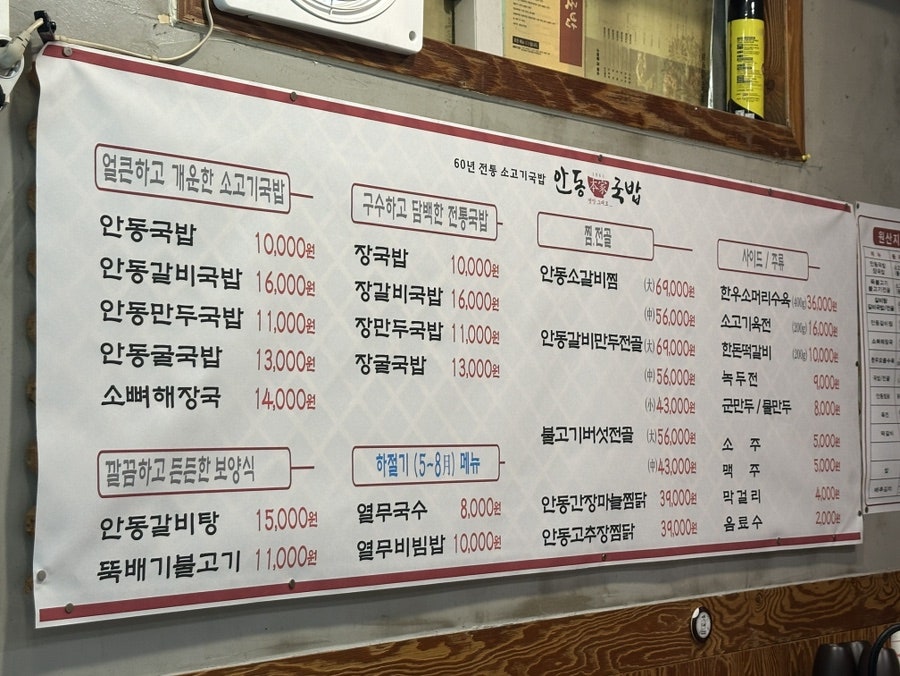 60년 전통 소고기국밥 안동 本家 국밥
얼큰하고 개운한 소고기국밥
안동국밥 10,000원
안동갈비국밥 16,000원
안동만두국밥 11,000원
안동굴국밥 13,000원
소뼈해장국 14,000원
깔끔하고 든든한 보양식
안동갈비탕 15,000원
뚝배기불고기 11,000원
구수하고 담백한 전통국밥
장국밥 10,000원
장갈비국밥 16,000원
장만두국밥 11,000원
장굴국밥 13,000원
하절기 (5~8月) 메뉴
열무국수 8,000원
열무비빔밥 10,000원
찜.전골
안동소갈비찜 (大) 69,000원
(中) 56,000원
안동갈비만두전골 (大) 69,000원
(中) 56,000원
(小) 43,000원
불고기버섯전골 (大) 56,000원
(中) 43,000원
안동간장마늘찜닭 39,000원
안동고추장찜닭 39,000원
사이드 / 주류
한우소머리수육 (400g) 36,000원
소고기육전 (200g) 16,000원
한돈떡갈비 (200g) 10,000원
녹두전 9,000원
군만두 / 물만두 8,000원
소 주 5,000원
맥 주 5,000원
막걸리 4,000원
음료수 2,000원
원산지